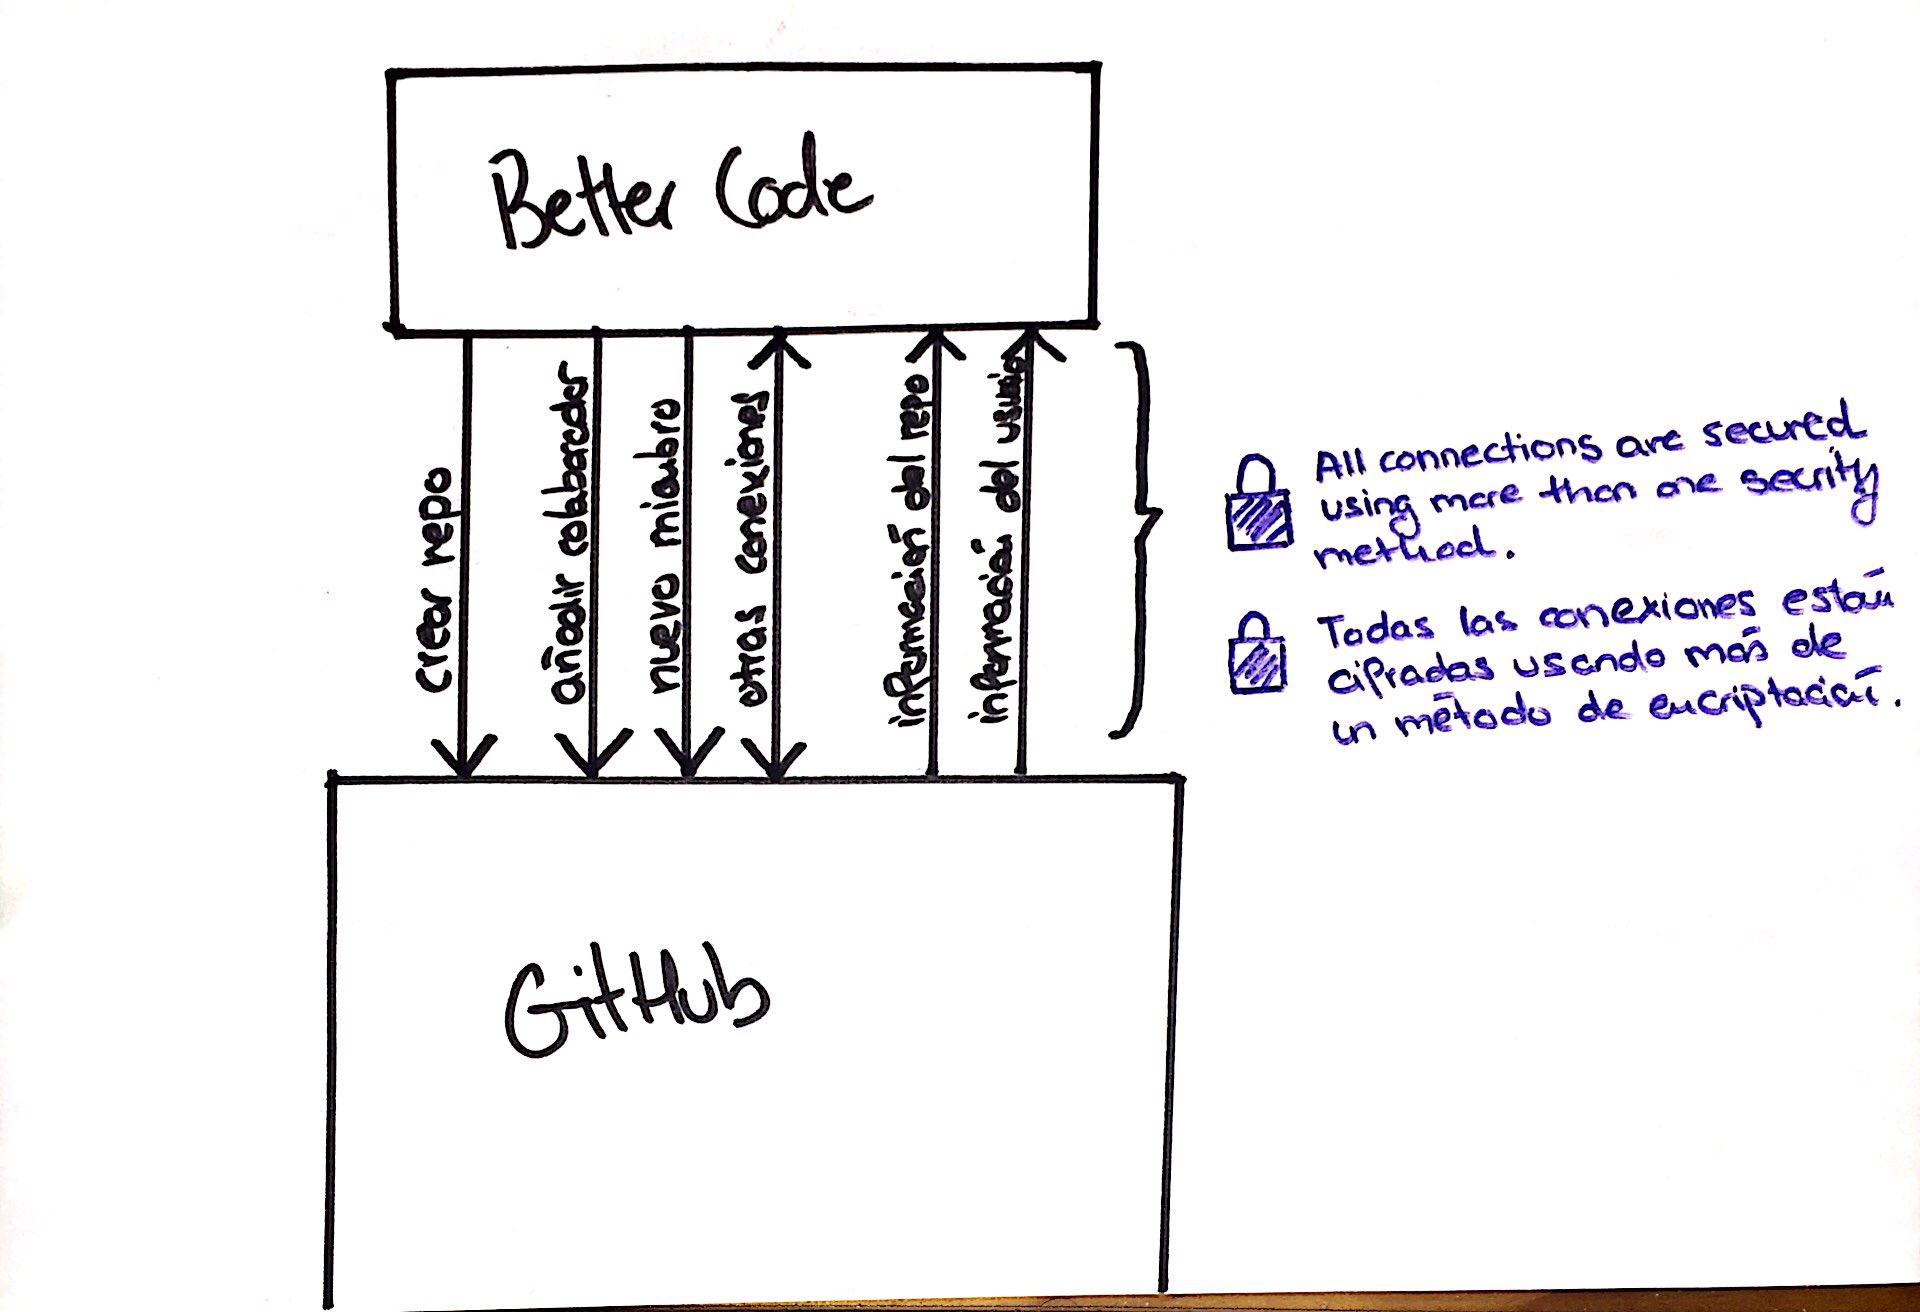 Better Code
crear repo
añadir colaborador
nuevo miembro
otras conexiones
información del repo
información del usuario
All connections are secured
using more than one secrity
method.
Todas las conexiones están
cifradas usando más de
un método de encriptación.
GitHub